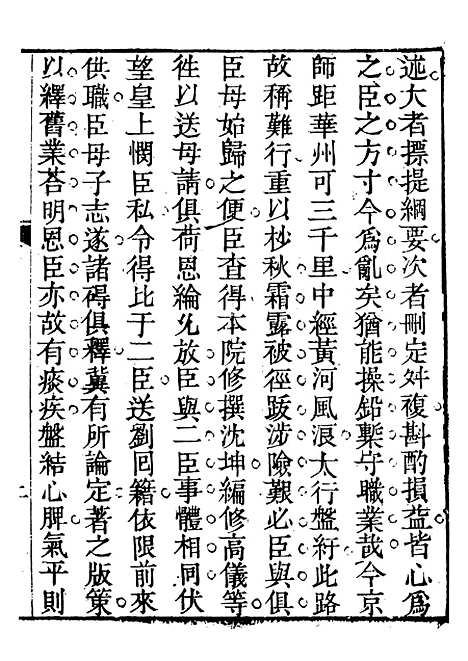 述大者摽提綱要次者刪定舛複斟酌損益皆心爲
之臣之方寸今爲亂矣猶能操鉛槧守職業哉今京
師距華州可三千里中經黃河風浪太行盤紆此路
故稱難行重以杪秋霜露被徑跋涉險艱必臣與俱
臣母始歸之便臣查得本院修撰沈坤編修高儀等
徃以送母請俱荷恩綸允放臣與二臣事體相同伏
望皇上憫臣私令得比于二臣送劉回籍依限前來
供職臣母子志遂諸碍俱釋冀有所論定著之版策
以繹舊業荅明恩臣亦故有痰疾盤結心脾氣平則